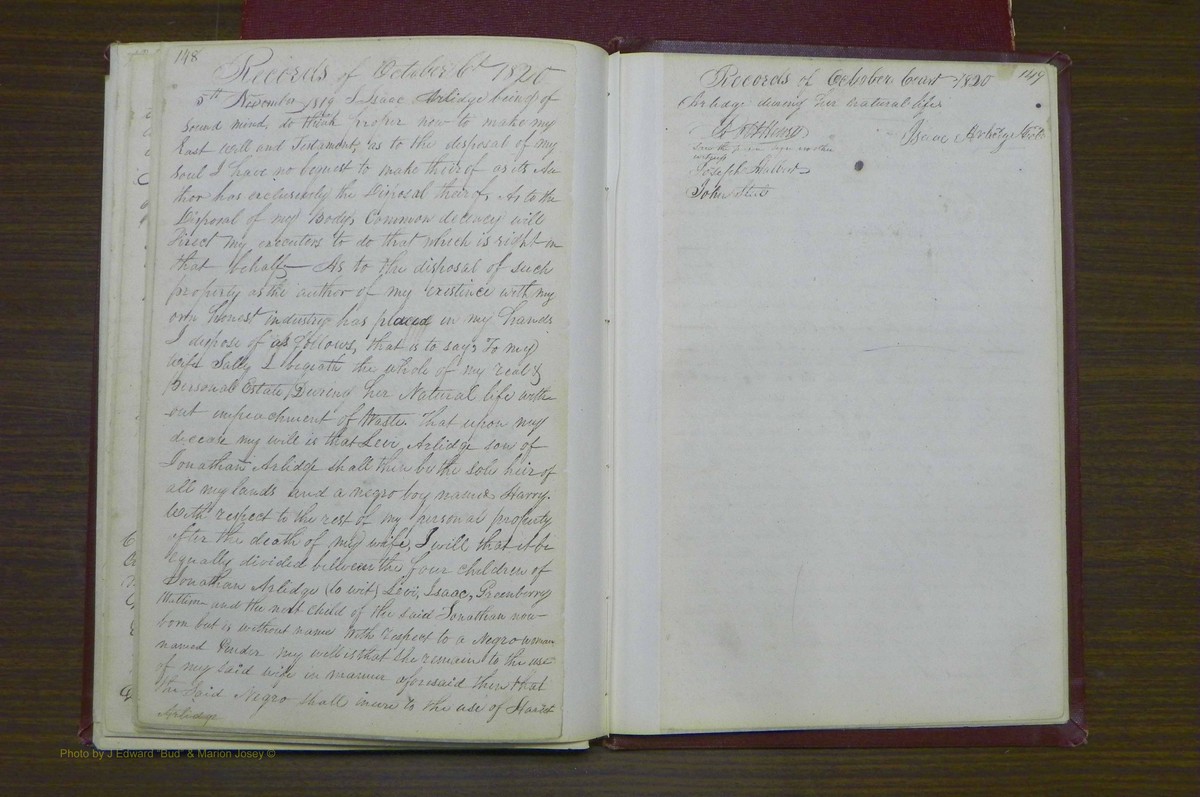 148
Records of October Ct 1820
5th November 1819 I Isaac Arlidge being of
sound mind, do think proper now to make my
Last will and Testament, as to the disposal of my
soul I have no bequest to make theirof as its Au
thor has exclusively the Disposal theirof, As to the
Disposal of my Body, Common decency will
Direct my executors to do that which is right in
that behalf As to the disposal of such
property as the author of my existence with my
own honest industry has placed in my hands
I dispose of as follows, that is to say, To my
wife Sally I beqeath the whole of my real &
Personal Estate During her Natural life with
out impeachment of Waste. That upon my
decease my will is that Levi Arlidge son of
Jonathan Arlidge shall then be the sole heir of
all my lands and a negro boy named Harry.
With respect to the rest of my personal property
after the death of my wife, I will that it be
Equally divided between the four children of
Jonathan Arlidge (to wit) Levi, Isaac, Greenberry
and the next child of the said Jonathan now
born but is without name With respect to a Negro woman
named my will is that she remain to the use
of my said wife in manner aforesaid then that
the said Negro shall inure to the use of
Arlidge
Records of October Court 1820 149
Arlidge during her natural life
Isaac Arlidge
Joseph
John
Photo by J Edward "Bud" & Marion Josey ©